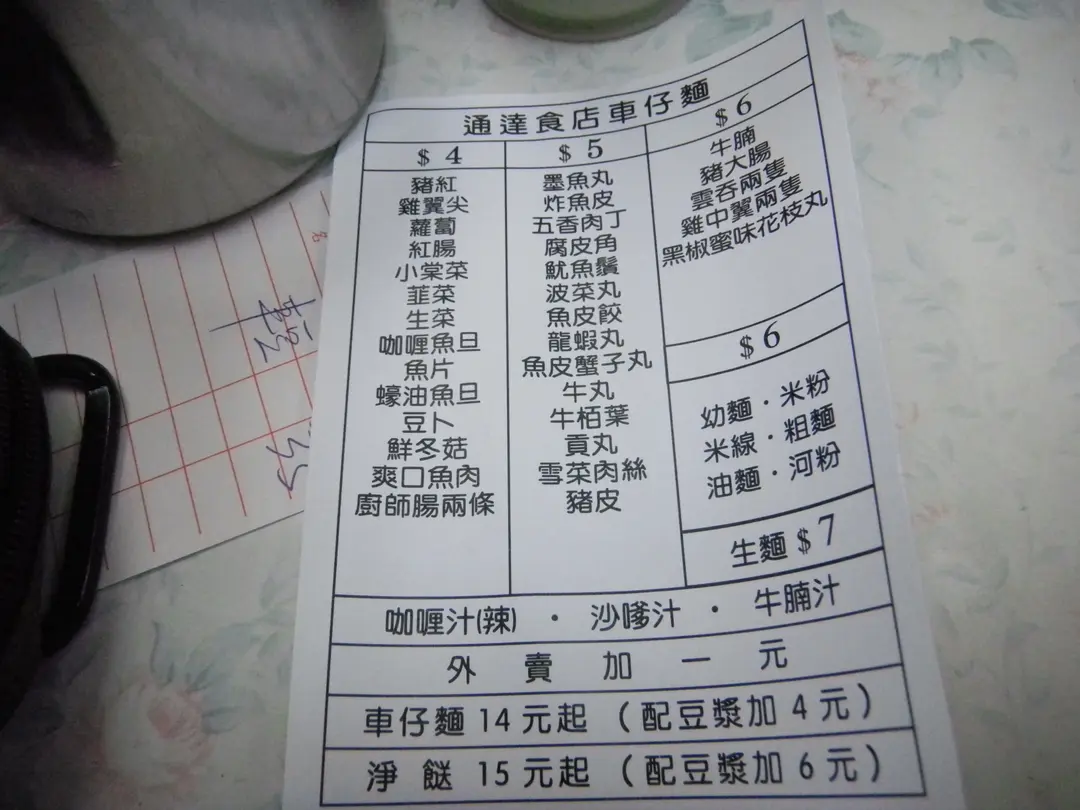 通達食店車仔麵
$ 4
豬紅
雞翼尖
蘿蔔
紅腸
小棠菜
韮菜
生菜
咖喱魚旦
魚片
蠔油魚旦
豆卜
鮮冬菇
爽口魚肉
廚師腸兩條
$ 5
墨魚丸
炸魚皮
五香肉丁
腐皮角
魷魚鬚
波菜丸
魚皮餃
龍蝦丸
魚皮蟹子丸
牛丸
牛栢葉
貢丸
雪菜肉絲
豬皮
$ 6
牛腩
豬大腸
雲吞兩隻
雞中翼兩隻
黑椒蜜味花枝丸
$ 6
幼麵・米粉
米線・粗麵
油麵・河粉
生麵 $ 7
咖喱汁(辣) ・ 沙嗲汁 ・ 牛腩汁
外賣加一元
車仔麵 14 元起 （配豆漿加 4 元）
淨餸 15 元起 （配豆漿加 6 元）